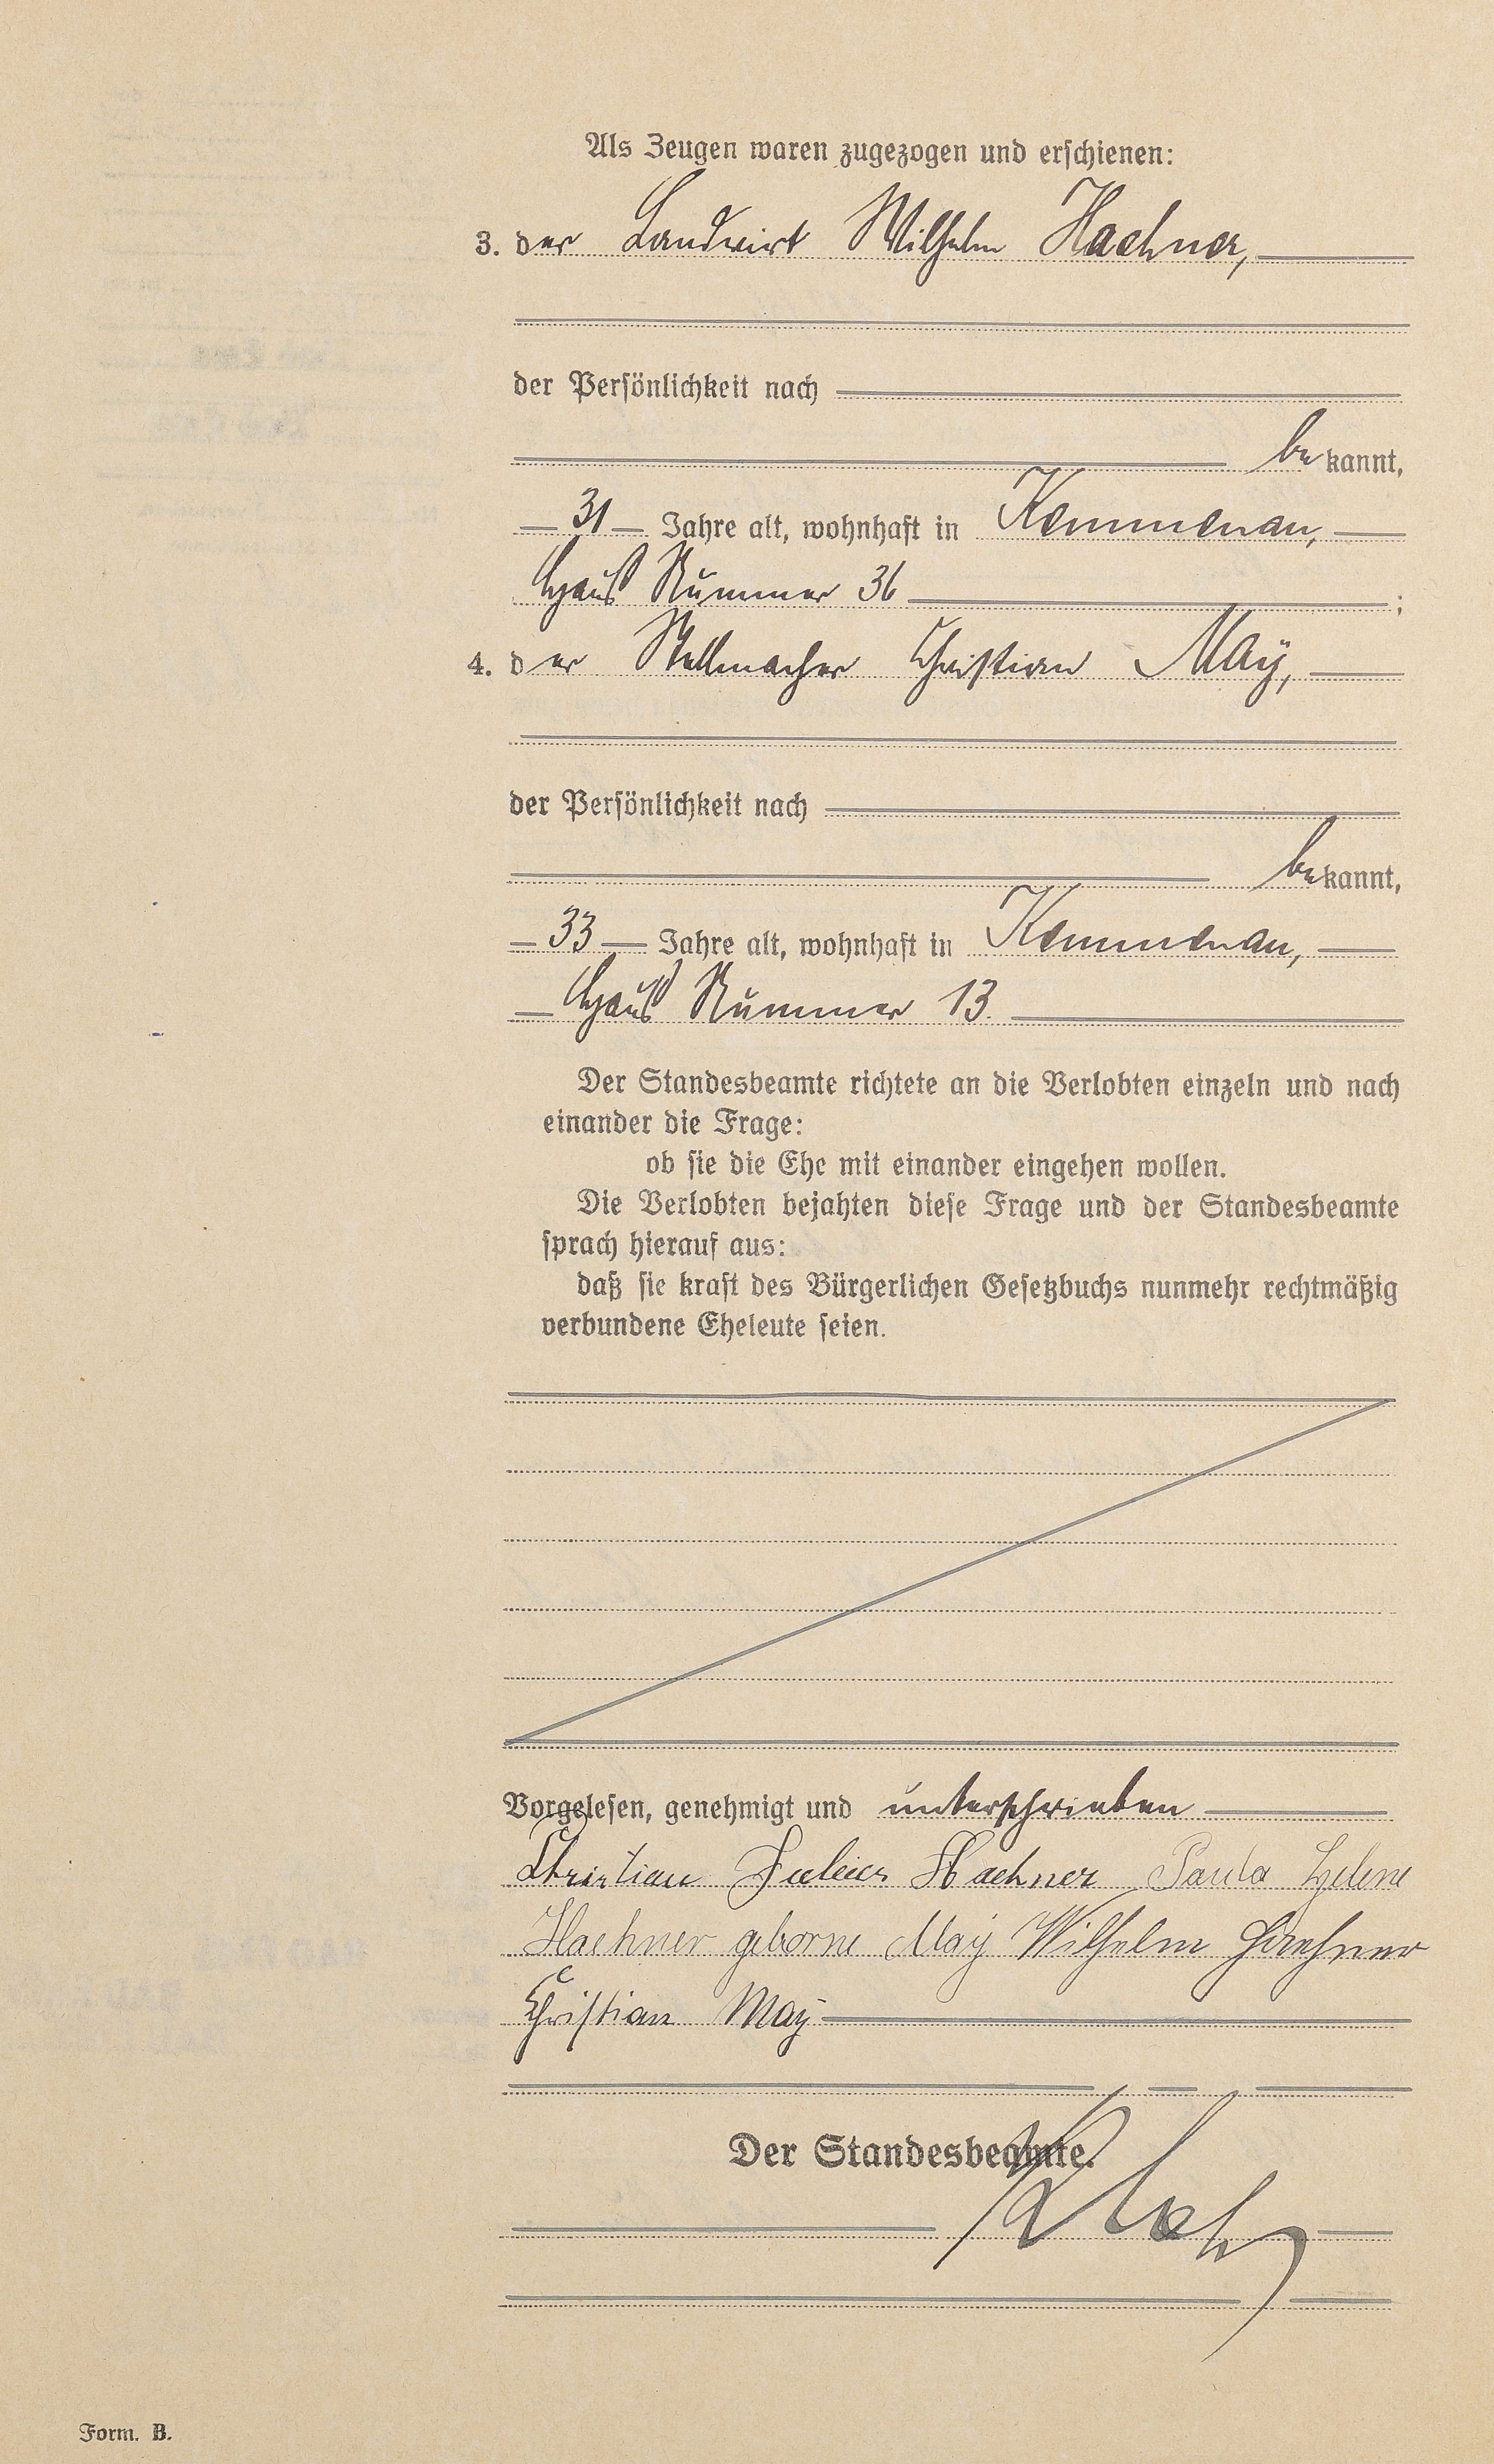 Als Zeugen waren zugezogen und erschienen:
3. der Landwirt Wilhelm Haehner,
der Persönlichkeit nach
bekannt,
31 Jahre alt, wohnhaft in Kemmenau,
Haus Nummer 36 ;
4. der Stellmacher Christian May,
der Persönlichkeit nach
bekannt,
33 Jahre alt, wohnhaft in Kemmenau,
Haus Nummer 13.
Der Standesbeamte richtete an die Verlobten einzeln und nach
einander die Frage:
ob sie die Ehe mit einander eingehen wollen.
Die Verlobten bejahten diese Frage und der Standesbeamte
sprach hierauf aus:
daß sie kraft des Bürgerlichen Gesetzbuchs nunmehr rechtmäßig
verbundene Eheleute seien.
Vorgelesen, genehmigt und unterschrieben
Christian Julius Haehner Paula Helene
Haehner geborne May Wilhelm Haehner
Christian May
Der Standesbeamte.
Form. B.